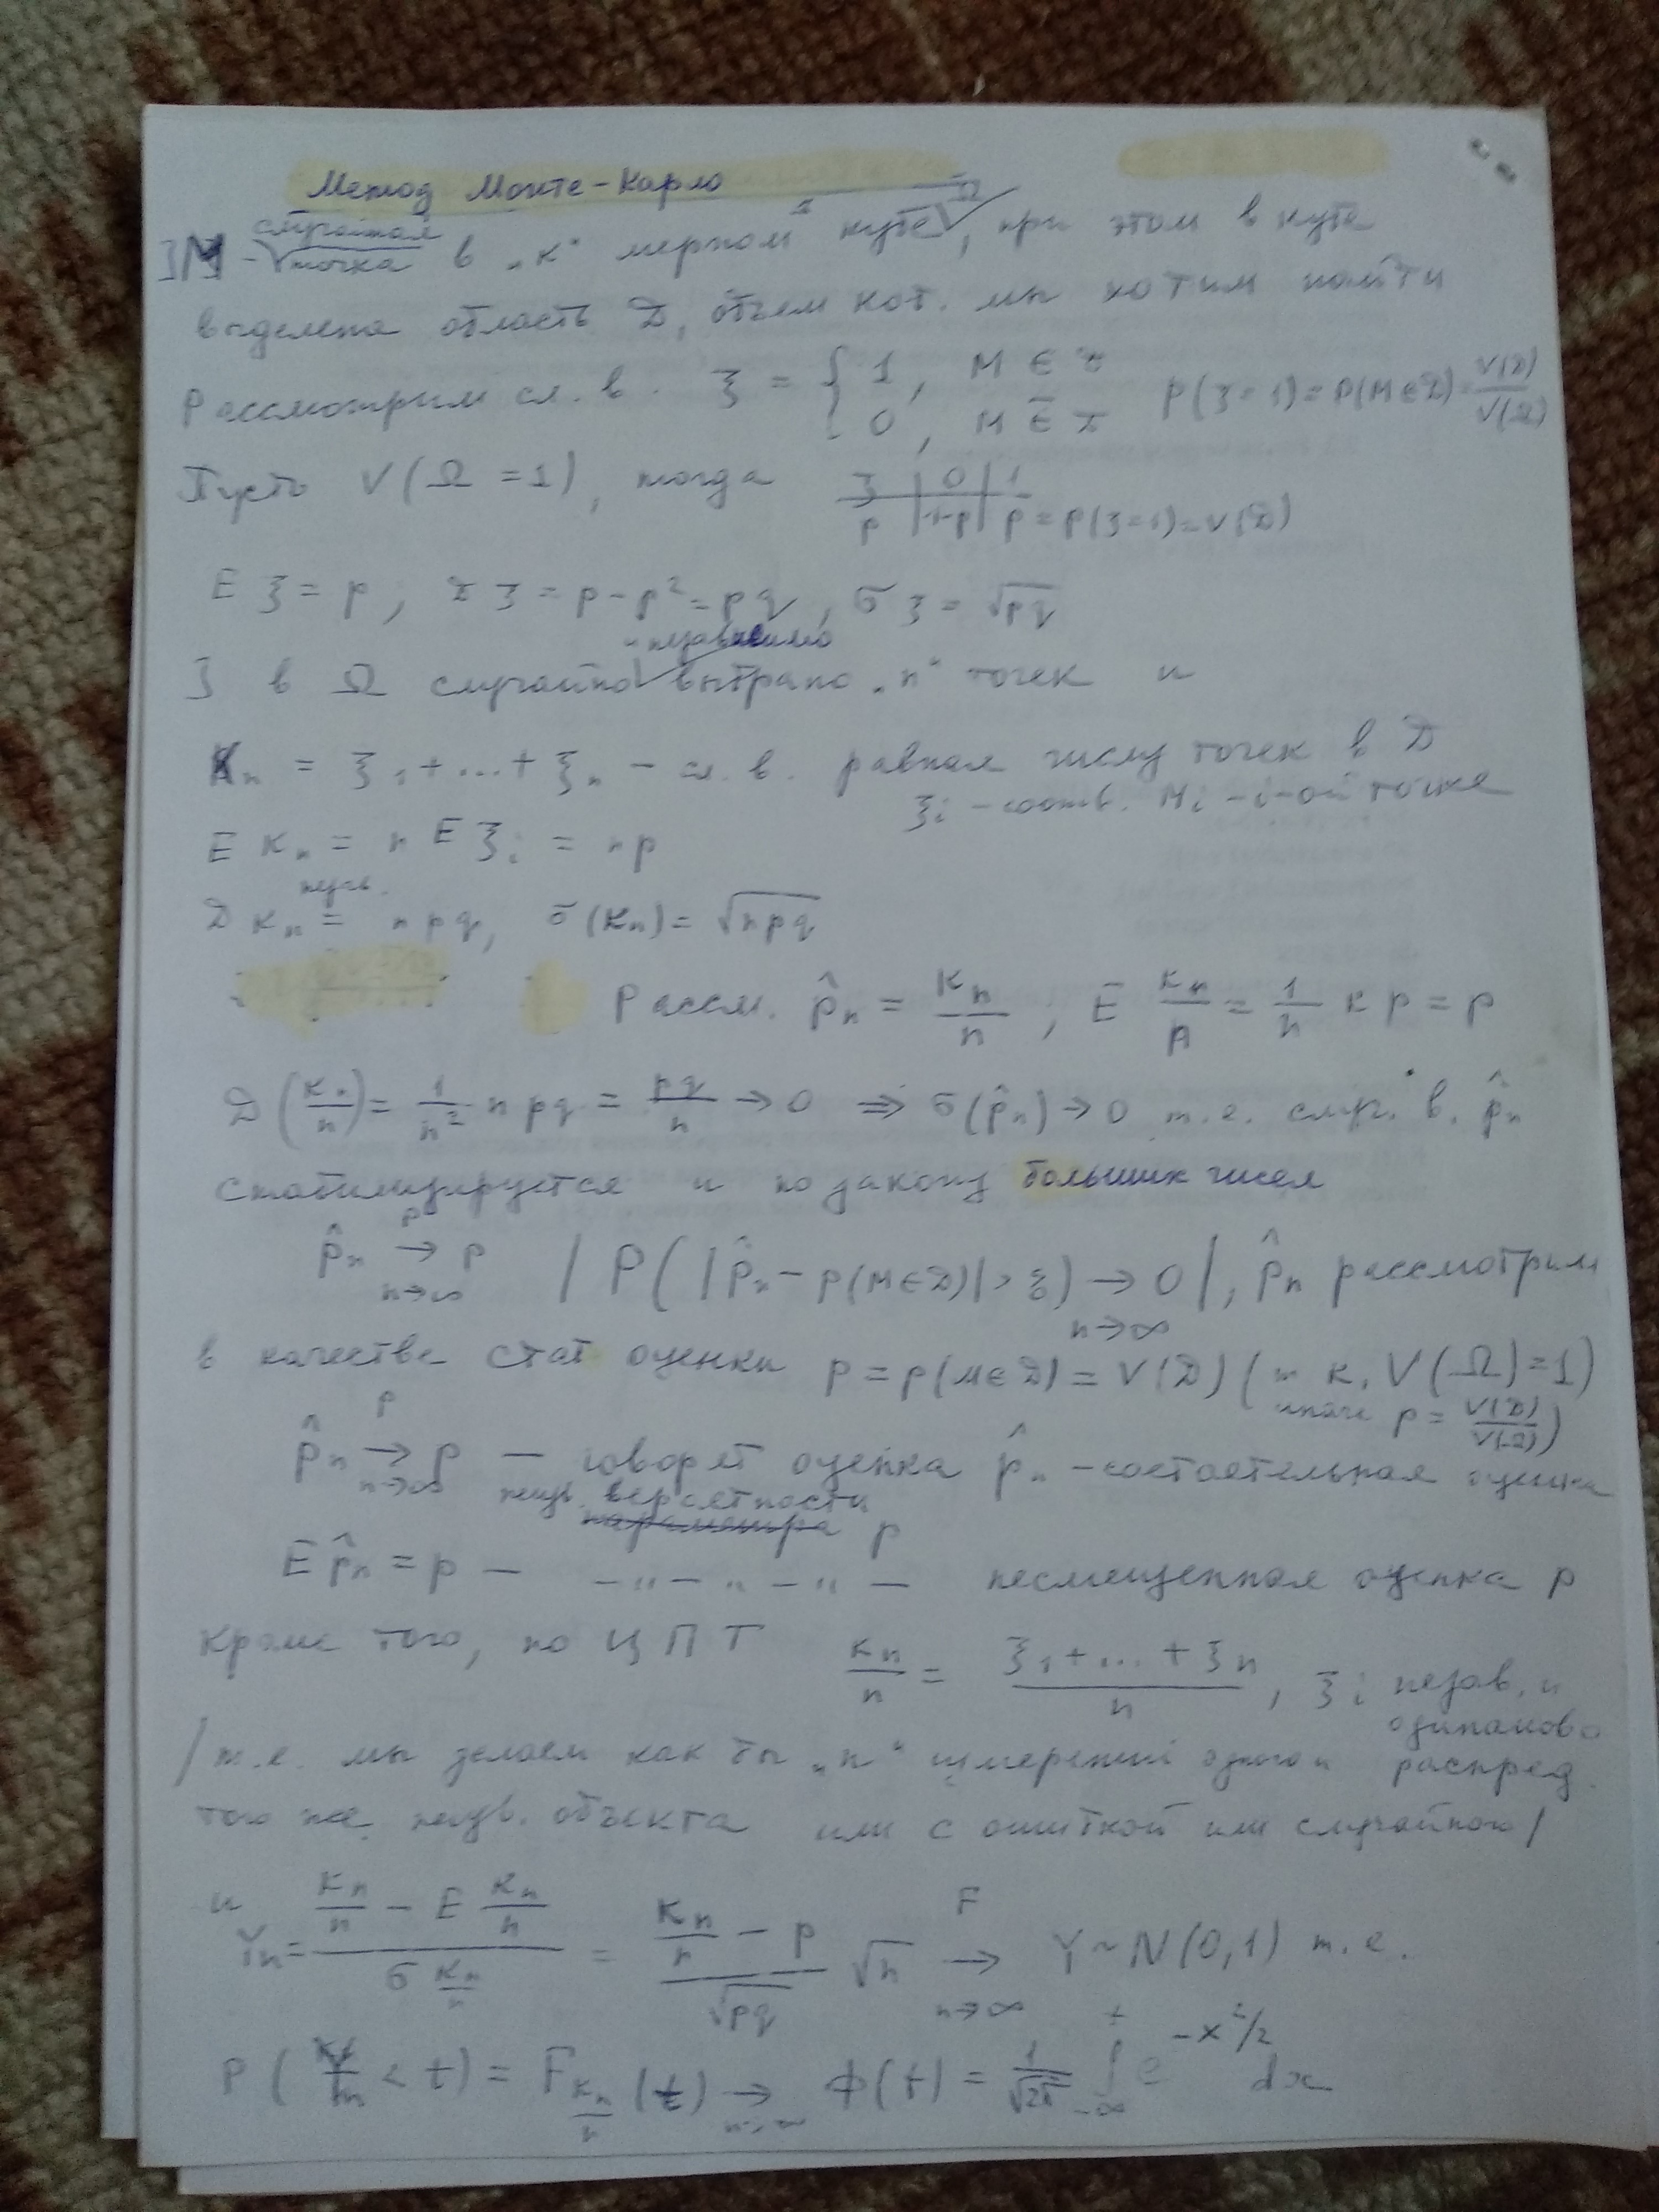 Метод Монте-Карло
] М - случайная точка в „к" мерном кубе Ω, при этом в кубе
выделена область D, объем кот. мы хотим найти
Рассмотрим сл. в. ξ = { 1, M ∈ D ; 0, M ∈̄ D P(ξ=1) = P(M∈D) = V(D)/V(Ω)
Пусть V(Ω = 1), тогда ξ | 0 | 1
p | 1-p | p = P(ξ=1) = V(D)
E ξ = p; D ξ = p - p² = pq, σ ξ = √pq
] в Ω случайно и независимо выбрано „n" точек и
Kₙ = ξ₁ + ... + ξₙ - сл. в. равная числу точек в D
ξᵢ - соотв. Mᵢ - i-ой точке
E Kₙ = n E ξᵢ = np
D Kₙ = npq, σ(Kₙ) = √npq
Рассм. p̂ₙ = Kₙ/n ; E Kₙ/n = 1/n к p = p
D (Kₙ/n) = 1/n² npq = pq/n → 0 ⇒ σ(p̂ₙ) → 0 т.е. случ. в. p̂ₙ
стабилизируется и по закону больших чисел
p̂ₙ →ᴾ p n→∞ / P(|p̂ₙ - p(M∈D)| > ξ) → 0 n→∞ /, p̂ₙ рассмотрим
в качестве стат оценки p = p(M∈D) = V(D) (т к. V(Ω) = 1)
иначе p = V(D)/V(Ω))
p̂ₙ →ᴾ p n→∞ — говорят оценка p̂ₙ - состоятельная оценка
неизв. вероятности p
E p̂ₙ = p — — " — " — " — несмещенная оценка p
Кроме того, по ЦПТ Kₙ/n = (ξ₁ + ... + ξₙ)/n, ξᵢ незав. и
одинаково
/ т.е. мы делаем как бы „n" измерений одного и распред.
того же неизв. объекта или с ошибкой или случайного /
и Yₙ = (Kₙ/n - E Kₙ/n)/(σ Kₙ/n) = (Kₙ/n - p)/√pq √n →ᶠ n→∞ Y ~ N(0,1) т.е.
P( < t) = F Kₙ/n (t) → n→∞ Φ(t) = 1/√2π ∫₋∞ᵗ e^(-x²/2) dx